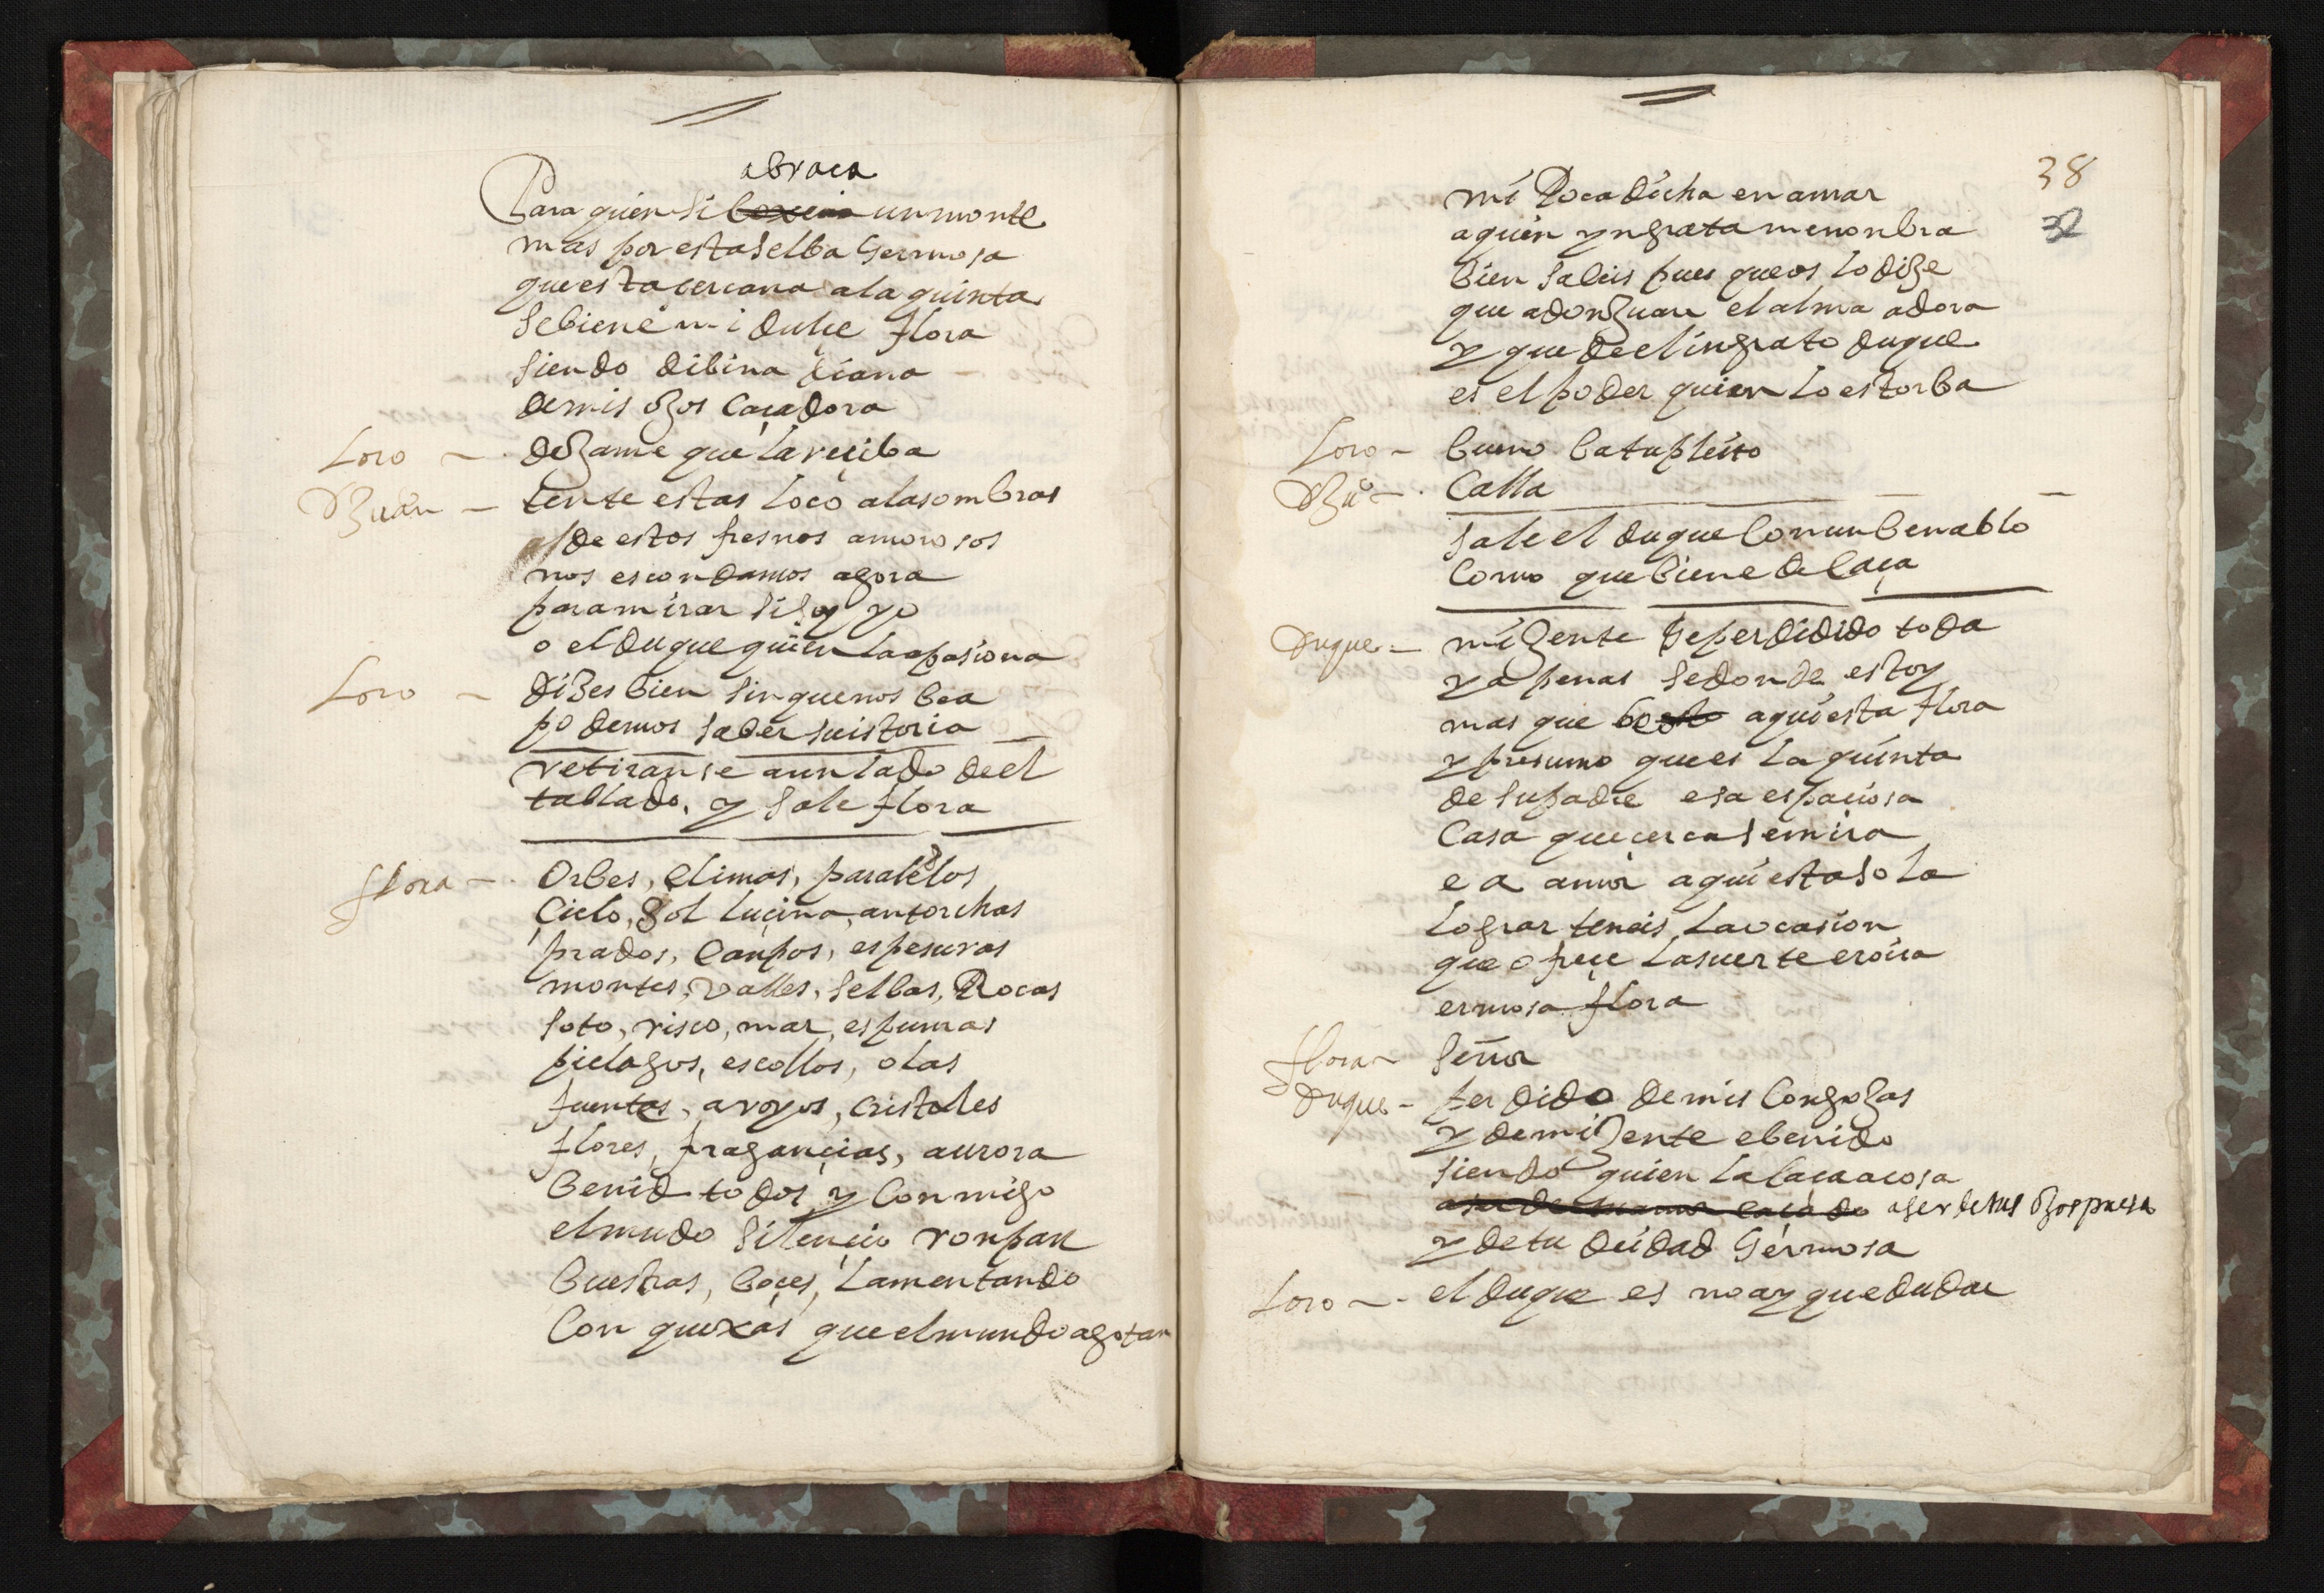 abraca
Para quien si un monte
mas por esta selba hermosa
que esta cercana a la quinta
se biene mi dulçe flora
siendo dibina diana
de mis ojos caçadora
Loro - dejame que la reçiba
D Juan - tente estas loco a la sombras
de estos fresnos amorosos
nos escondamos agora
para mirar si soy yo
o el duque quien la apasiona
Loro - dizes bien sin que nos bea
podemos saber su istoria
retiranse a un lado de el
tablado, y sale flora
flora - Orbes, climas, paralelos
Çielo, Sol luçina, antorchas
prados, campos, espesuras
montes, valles, selbas, Rocas
soto, risco, mar, espumas
pielagos, escollos, olas
fuentes, aroyos, cristales
flores, fragançias, aurora
benid todos y conmigo
el mudo silençio ronpan
buestras, boçes, lamentando
con quexas que el mundo agotan
38
32
mi Poca dicha en amar
a quien yngrata me nonbra
bien sabeis pues que os lo dize
que a don Juan el alma adora
y que de el ingrato duque
es el poder quien lo estorba
Loro - bueno ba tu pleito
D Juº - Calla
Sale el duque con un benablo
como que biene de caça
Duque - mi jente he perdidido toda
y apenas se donde estoy
mas que aqui esta flora
y presumo que es la quinta
de su padre esa espaciosa
casa que çerca se mira
ea amor aqui esta sola
lograr teneis la ocasion
que ofreçe la suerte eroica
ermosa flora
flora - Señor
Duque - perdido de mis congojas
y de mi jente e benido
siendo quien la caça acosa
a ser de tus ojos presa
y de tu deidad hermosa
Loro - el duque es no ay que dudar